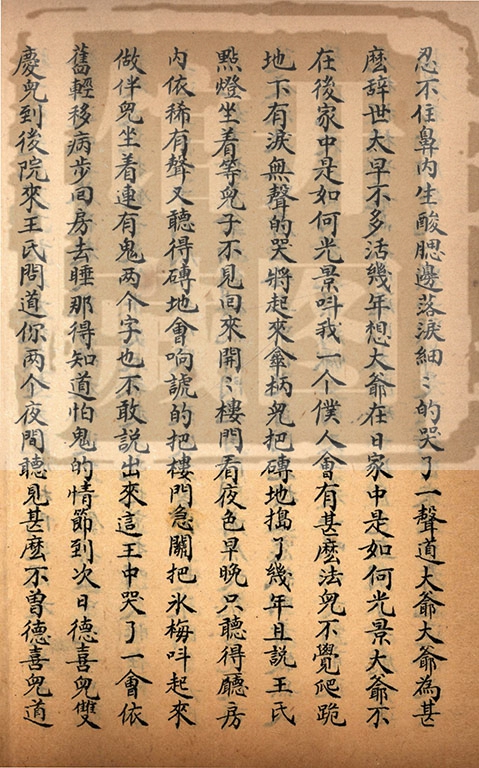 忍不住鼻内生酸腮邊落淚細〻的哭了一聲道大爺大爺為甚
麽辞世太早不多活幾年想大爺在日家中是如何光景大爺不
在後家中是如何光景呌我一个僕人會有甚麽法兒不覺爬跪
地下有淚無聲的哭將起來傘柄兒把磚地搗了幾年且説王氏
㸃燈坐着等兒子不見囬來開〻樓門看夜色早晚只聽得廳房
内依稀有聲又聽得磚地會响諕的把樓門急關把氷梅呌起來
做伴兒坐着連有鬼两个字也不敢説出來這王中哭了一會依
舊輕移病步囬房去睡那得知道怕鬼的情節到次日德喜兒雙
慶兒到後院來王氏問道你两个夜間聽見甚麽不曾德喜兒道